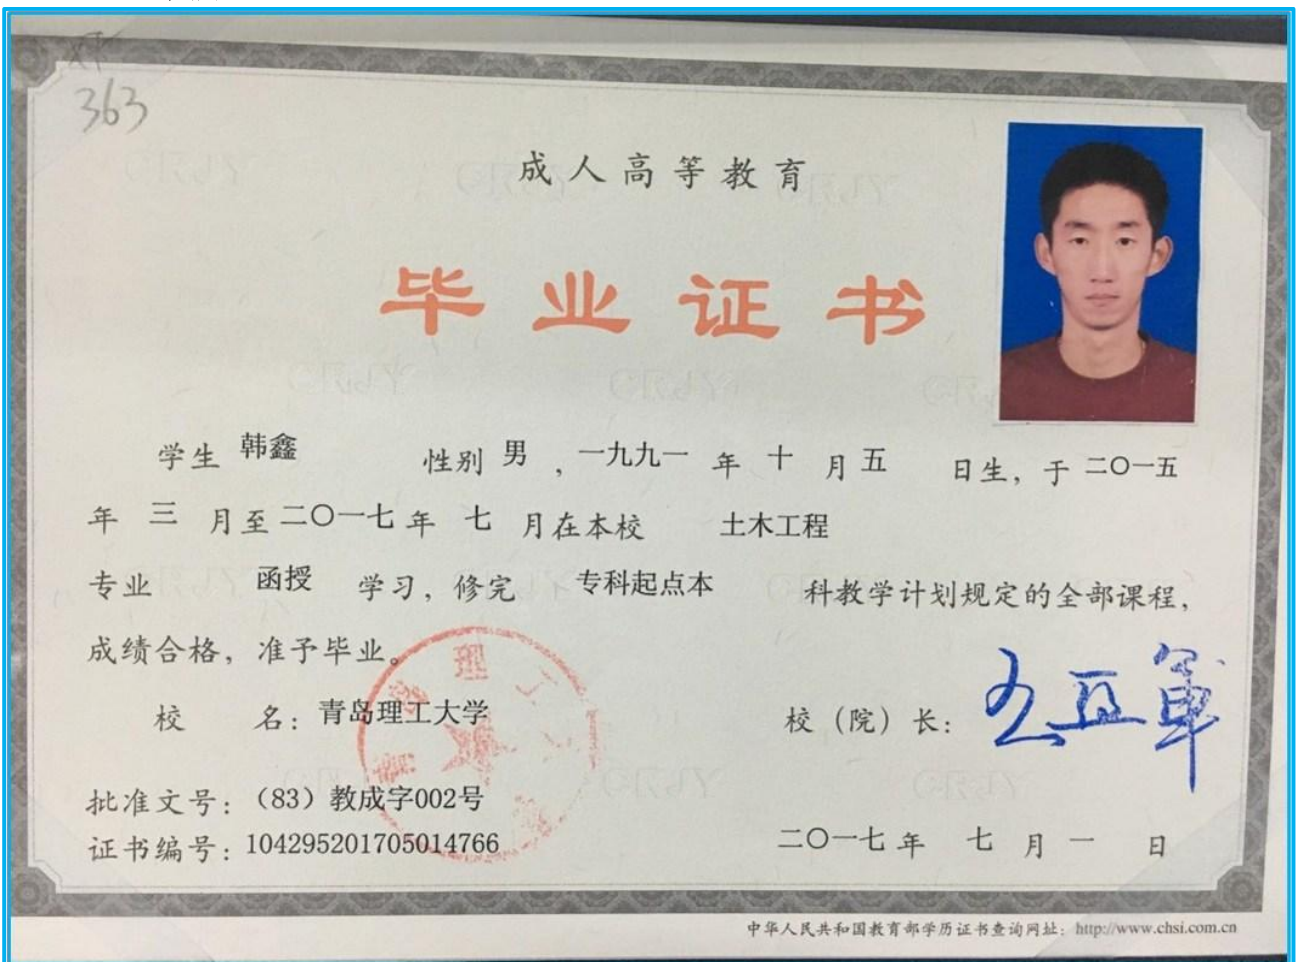 363
成人高等教育
毕业证书
学生 韩鑫 性别 男 ，一九九一 年 十 月 五 日生，于 二〇一五
年 三 月至 二〇一七 年 七 月在本校 土木工程
专业 函授 学习，修完 专科起点本 科教学计划规定的全部课程，
成绩合格，准予毕业。
校 名：青岛理工大学 校（院）长：
批准文号：（83）教成字002号
证书编号：104295201705014766 二〇一七 年 七 月 一 日
中华人民共和国教育部学历证书查询网址：http://www.chsi.com.cn